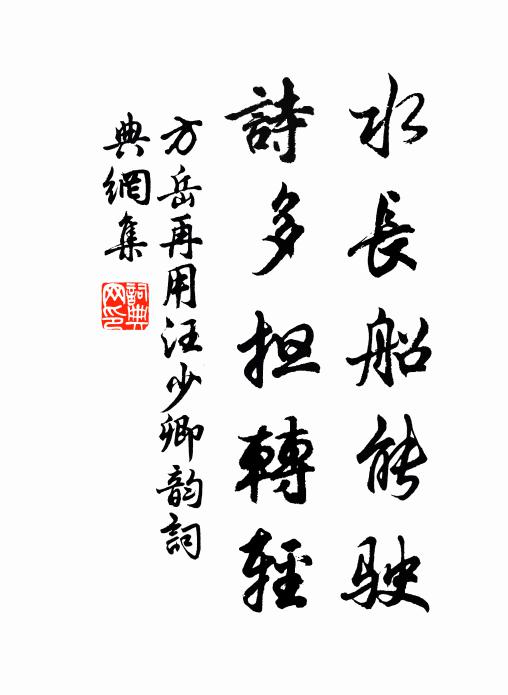 水長船能駛
詩多担轉輕
方岳再用汪少卿韵詞
典網集
詞典網印